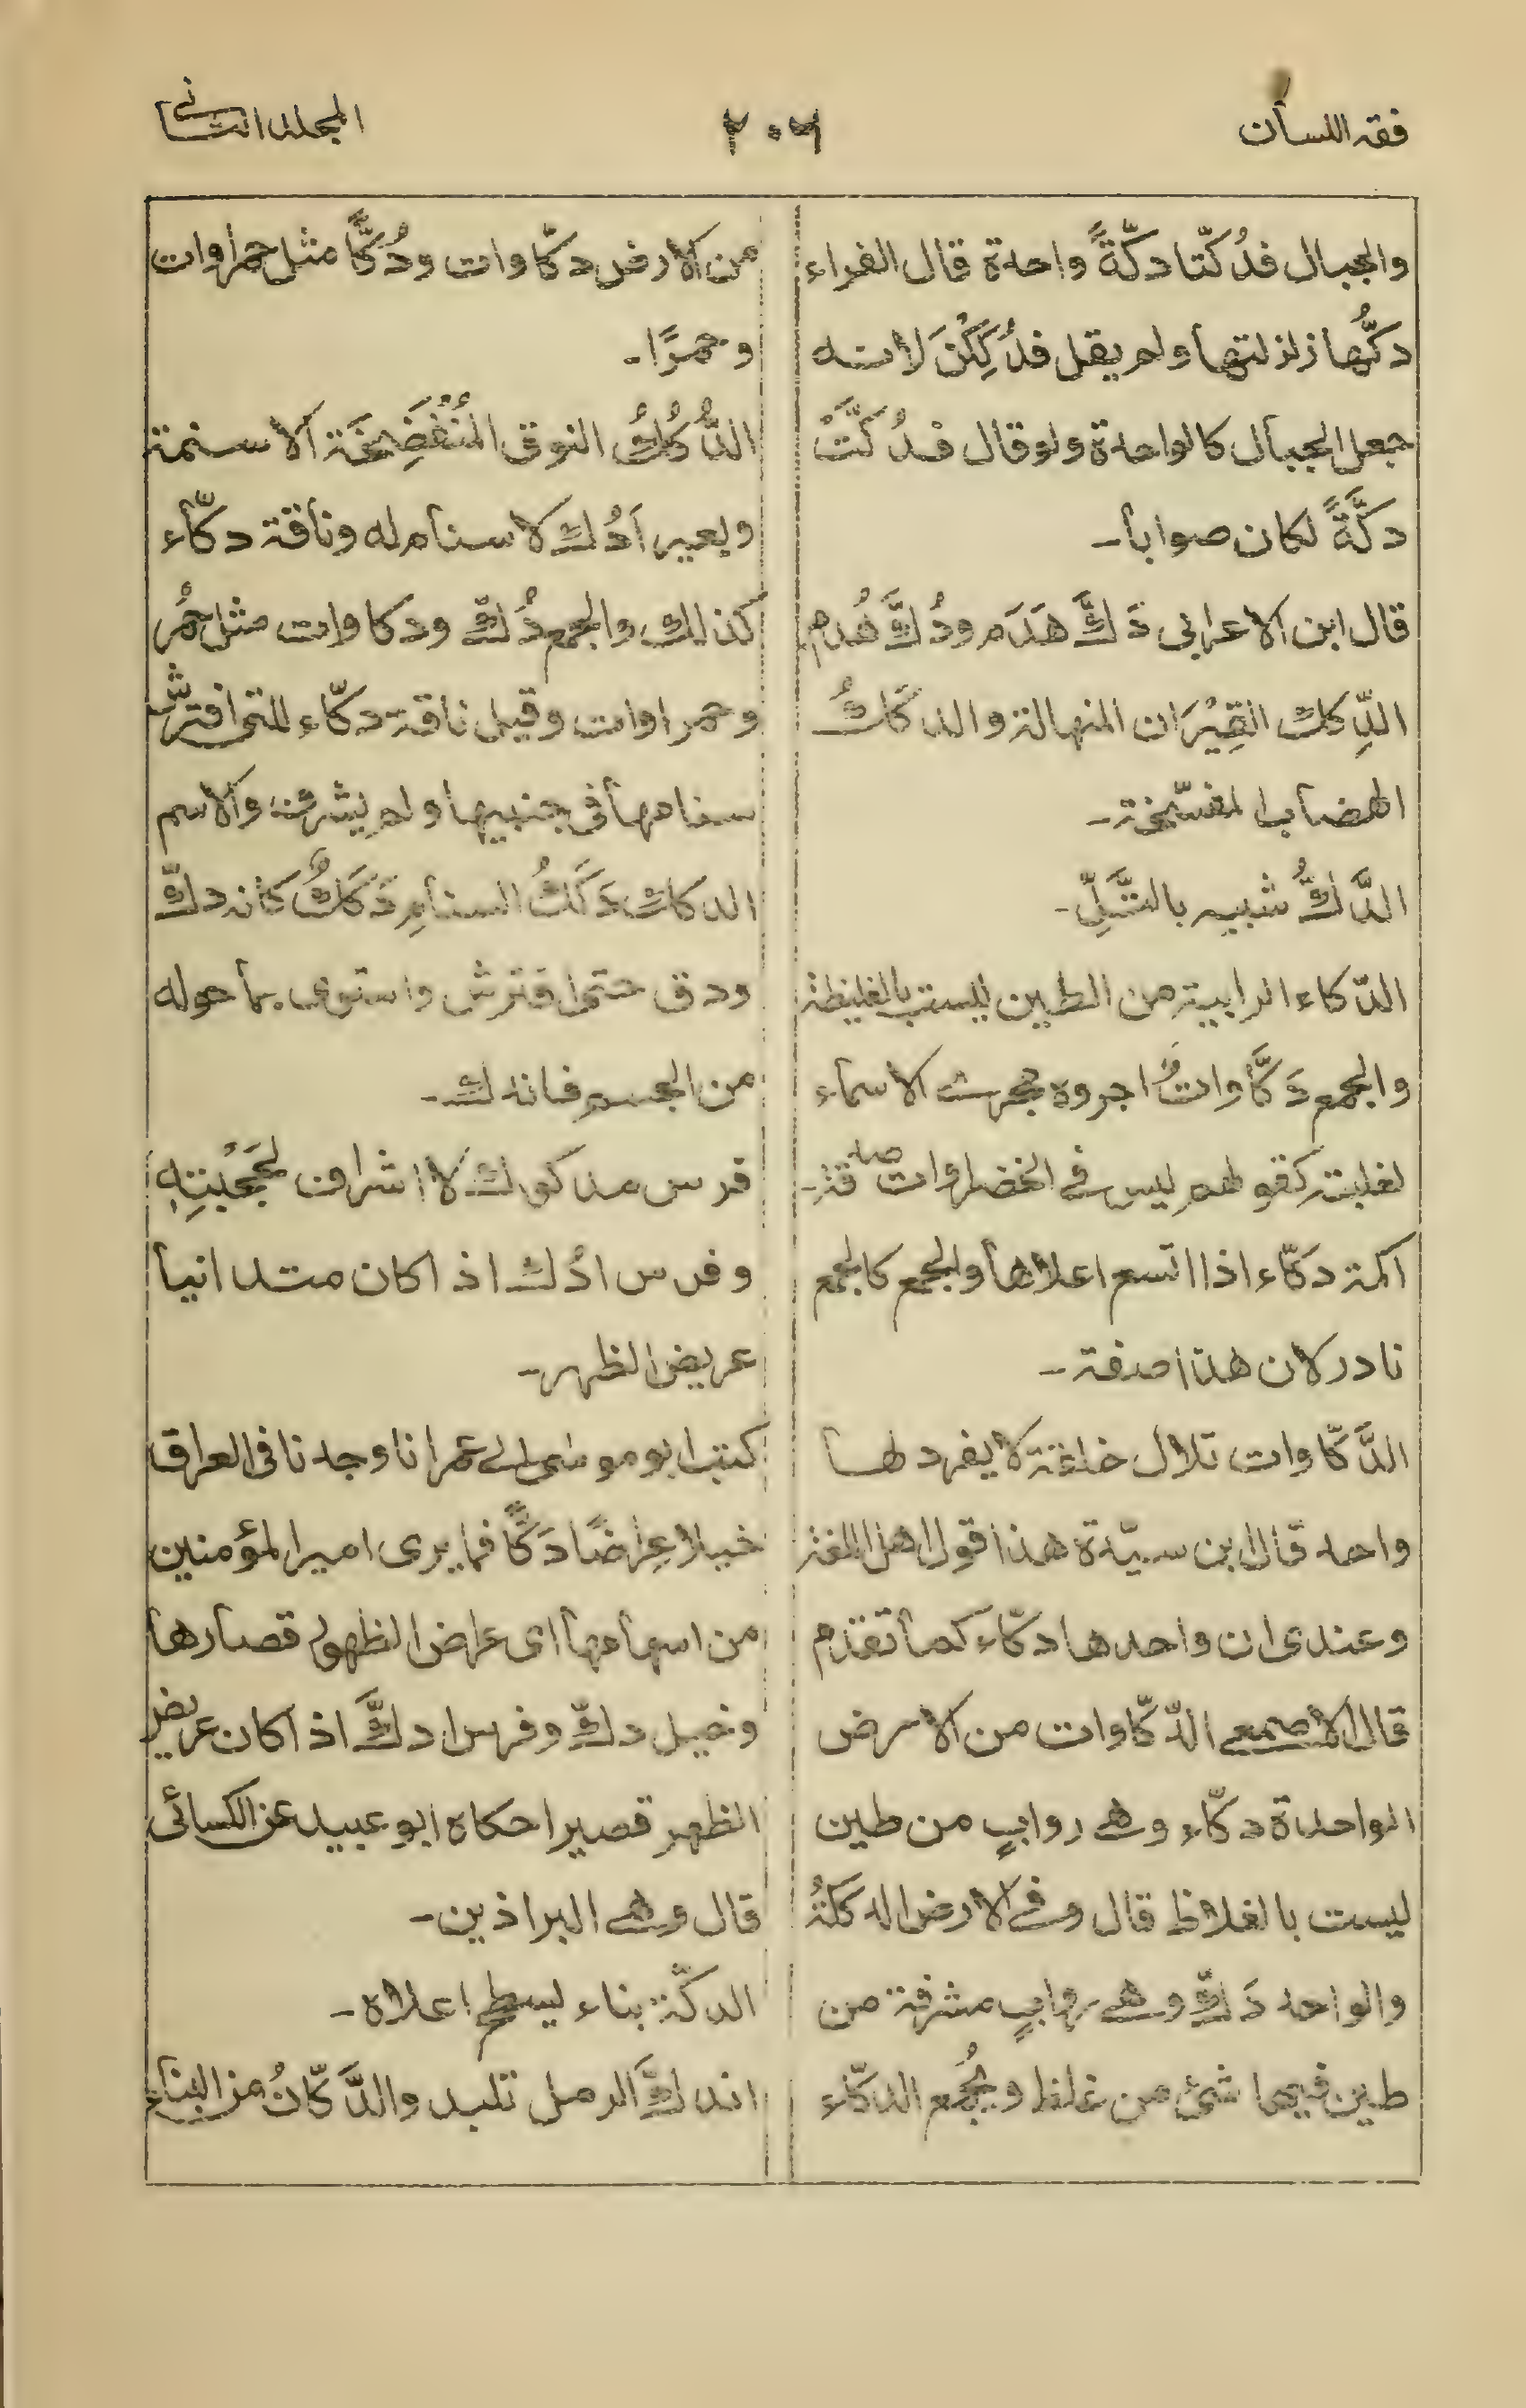 فقه اللسان
٢٠٦
المجلد الثانی
والجبال فدُكّتا دكّةً واحدة قال الفراء
دكُّها زلزلتها ولم يقل فدُكِكْنَ لانه
جعل الجبال كالواحدة ولو قال فدُكَّتْ
دكَّةً لكان صوابا۔
قال ابن الاعرابی دَكَّ هَدَم ودُكَّ هُدِم
الدِّكك القِيْرَان المنهالة والدكَكُ
الهضاب المفسّخة۔
الدَّكُّ شبيه بالتَّلِّ۔
الدّكاء الرابية من الطين ليست بالغليظة
والجمع دَكَّاواتٌ اجروه مجرى الاسماء
لغلبته كقولهم ليس فی الخضراوات صدقة۔
اكمة دكّاء اذا اتسع اعلاها والجمع كالجمع
نادر لان هذا صفة۔
الدَّكّاوات تلال خلقة لا يفرد لها
واحد قال ابن سيّدة هذا قول اهل اللغة
وعندی ان واحدها دكّاء كما تقدّم
قال الاصمعی الدّكّاوات من الارض
الواحدة دكّاء وهی روابٍ من طين
ليست بالغلاظ قال وفی الارض الدكَكَةُ
والواحد دَكٌّ وهی روابٍ مشرفة من
طين فيها شئ من غلظ ويُجْمَع الدكّاء
من الارض دكّاوات ودُكًّا مثل حمراوات
وحمرًا۔
الدُّكُكُ النوق المُنْفَضِخَة الاسنمة
وبعير اَدُك لا سنام له وناقة دكّاء
كذالك والجمع دُكّ ودكاوات مثل حُمُر
وحمراوات وقيل ناقة دكّاء للتی افترش
سنامها فی جنبيها ولم يشرف والاسم
الدكك دَكَكُ السنامِ دَكَكٌ كانه دكّ
ودق حتى افترش واستوى بما حوله
من الجسم فاندك۔
فرس مدكوك لا اشراف لحَجَبْتِهٖ
وفرس ادُك اذا كان متدانيا
عريض الظهر۔
كتب ابو موسى الى عمر انا وجدنا فی العراق
خيلا عِراضًا دَكًّا فما يرى امير المؤمنين
من اسهامها ای عراض الظهور قصارها
وخيل دكّ وفرس ادكَّ اذا كان عريض
الظهر قصيرا حكاه ابو عبيد عن الكسائی
قال وهی البراذين۔
الدكّة بناء ليسطح اعلاه۔
اندكَّ الرمل تلبد والدَّكّانُ من البناء